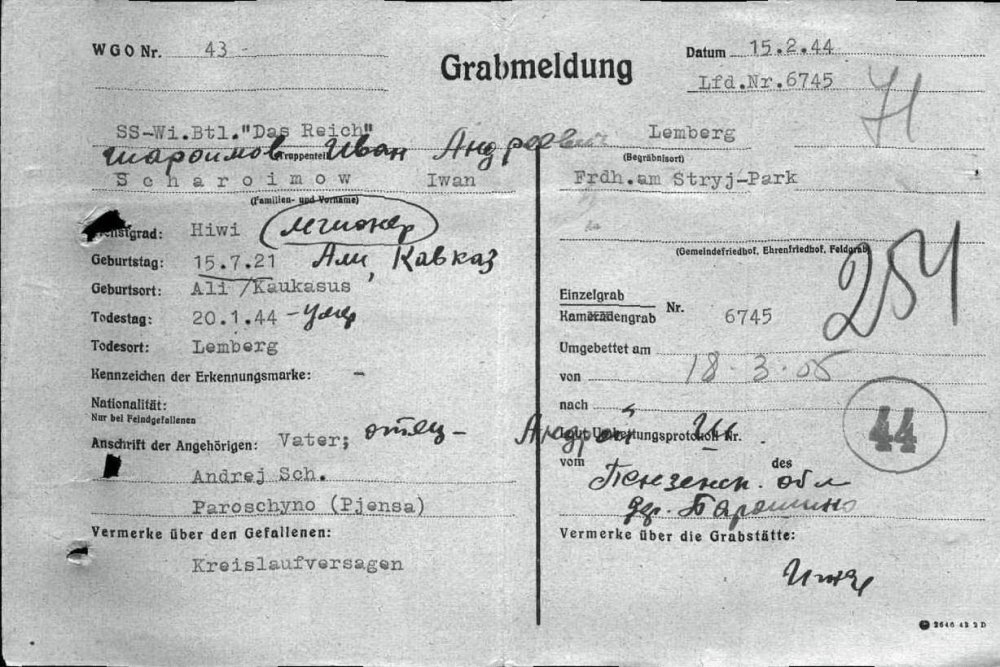 WGO Nr. 43 -
Grabmeldung
Datum 15.2.44
Lfd.Nr.6745
71
SS-Wi.Btl."Das Reich"
Шароимов Иван Андреевич
(Truppenteil)
Scharoimow Iwan
(Familien- und Vorname)
Dienstgrad: Hiwi легионер
Geburtstag: 15.7.21 Али, Кавказ
Geburtsort: Ali /Kaukasus
Todestag: 20.1.44 - умер
Todesort: Lemberg
Kennzeichen der Erkennungsmarke: -
Nationalität:
Nur bei Feindgefallenen
Anschrift der Angehörigen: Vater; отец - Андрей Ш.
Andrej Sch.
Paroschyno (Pjensa)
Vermerke über den Gefallenen:
Kreislaufversagen
Lemberg
(Begräbnisort)
Frdh.am Stryj-Park
(Gemeindefriedhof, Ehrenfriedhof, Feldgrab)
254
Einzelgrab
Kameradengrab Nr. 6745
Umgebettet am
von 18.3.05
nach
44
Laut Umbettungsprotokoll Nr.
vom des
Пензенск. обл
дер. Барошино
Vermerke über die Grabstätte:
2646 42 2 D